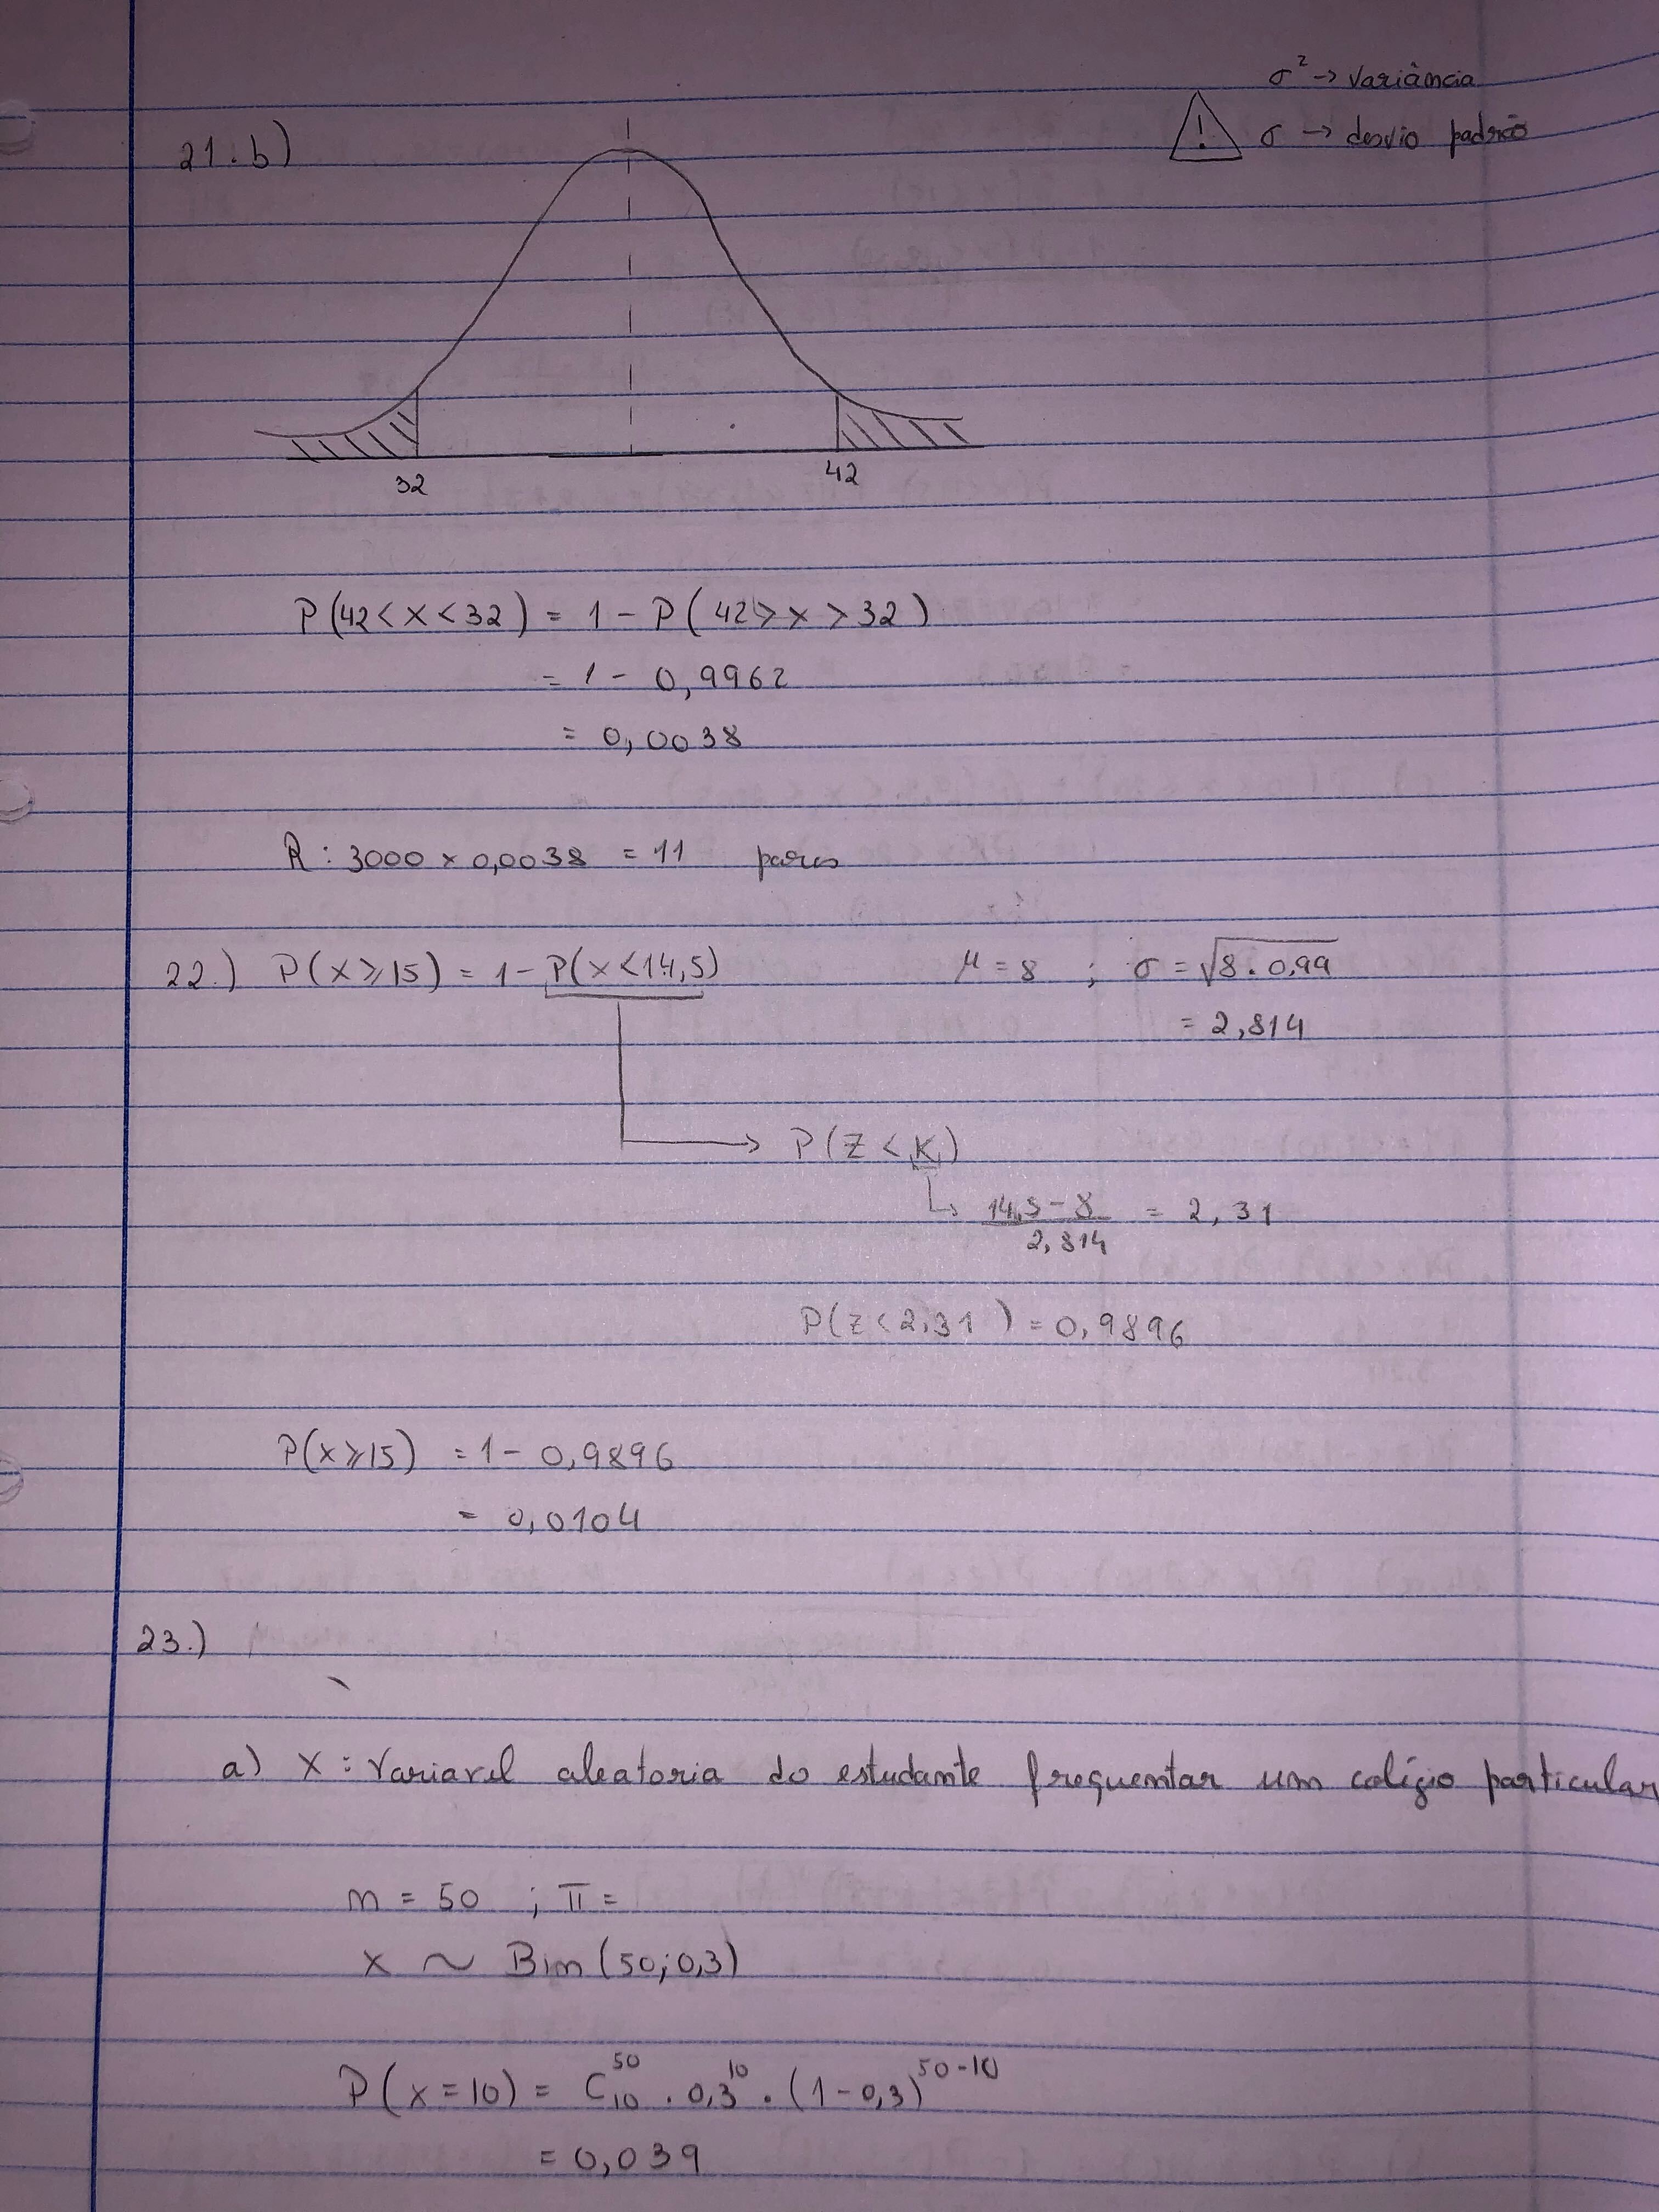 σ² → variância
! σ → desvio padrão
21. b)
32 42
P(42 < x < 32) = 1 - P(42 > x > 32)
= 1 - 0,9962
= 0,0038
R: 3000 x 0,0038 = 11 pares
22.) P(x ⩾ 15) = 1 - P(x < 14,5) μ = 8 ; σ = √8 . 0,99
= 2,814
→ P(Z < K)
↳ 14,5 - 8 / 2,814 = 2,31
P(Z < 2,31) = 0,9896
P(x ⩾ 15) = 1 - 0,9896
= 0,0104
23.)
a) X : Variavel aleatoria do estudante frequentar um colégio particular
n = 50 ; π =
x ~ Bin (50; 0,3)
P(x = 10) = C⁵⁰₁₀ . 0,3¹⁰ . (1 - 0,3)⁵⁰⁻¹⁰
= 0,039